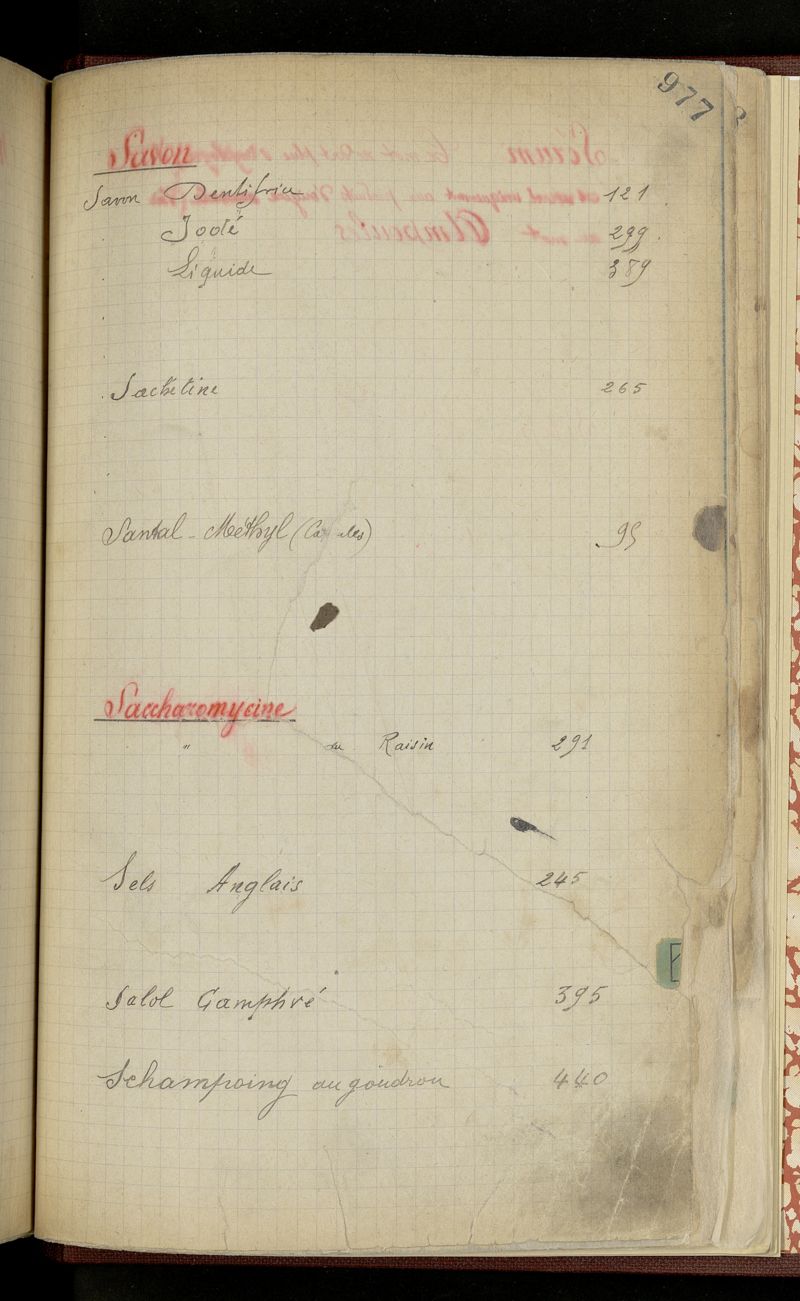 977
Savon
Savon Dentifrice 121
Iodé 299
Liquide 389
Sachetine 265
Santal-Méthyl 95
Saccharomycine
" du Raisin 291
Sels Anglais 245
E
Salol Camphré 395
Schampoing au goudron 440